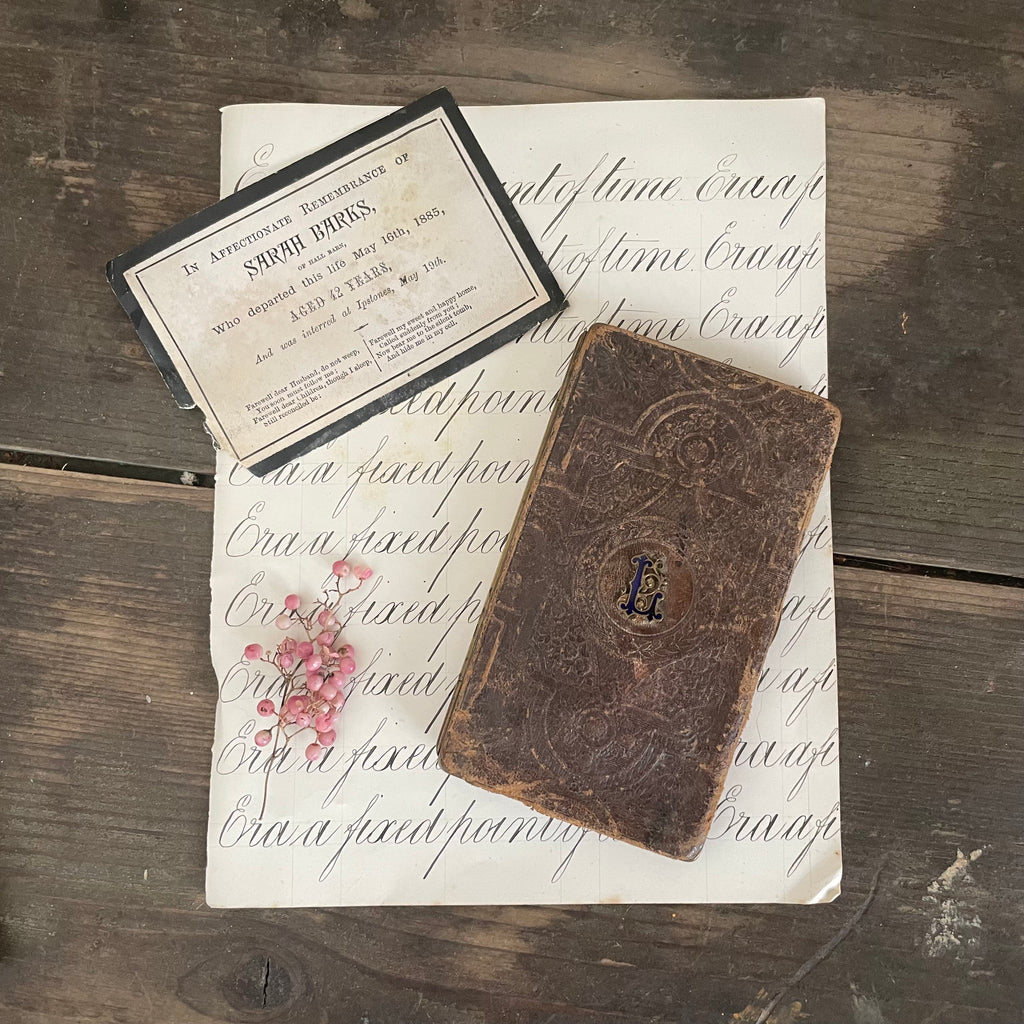 In Affectionate Remembrance of
SARAH BARKS,
OF HALL BARN,
Who departed this life May 16th, 1885,
AGED 42 YEARS,
And was interred at Ipstones, May 19th.
Farewell dear Husband, do not weep,
You soon must follow me;
Farewell dear Children, though I sleep,
Still reconciled be:
Farewell my sweet and happy home,
Called suddenly from you;
Now bear me to the silent tomb,
And hide me in my cell.
E nt of time. Era a fi
of time. Era a fi
nt of time Era a fi
ed poin
Era a fixed poin
Era a fixed poi
Era fixed
Era fixed a fi
Era a fixed ra a fi
Era a fixed point of Era a fi
L